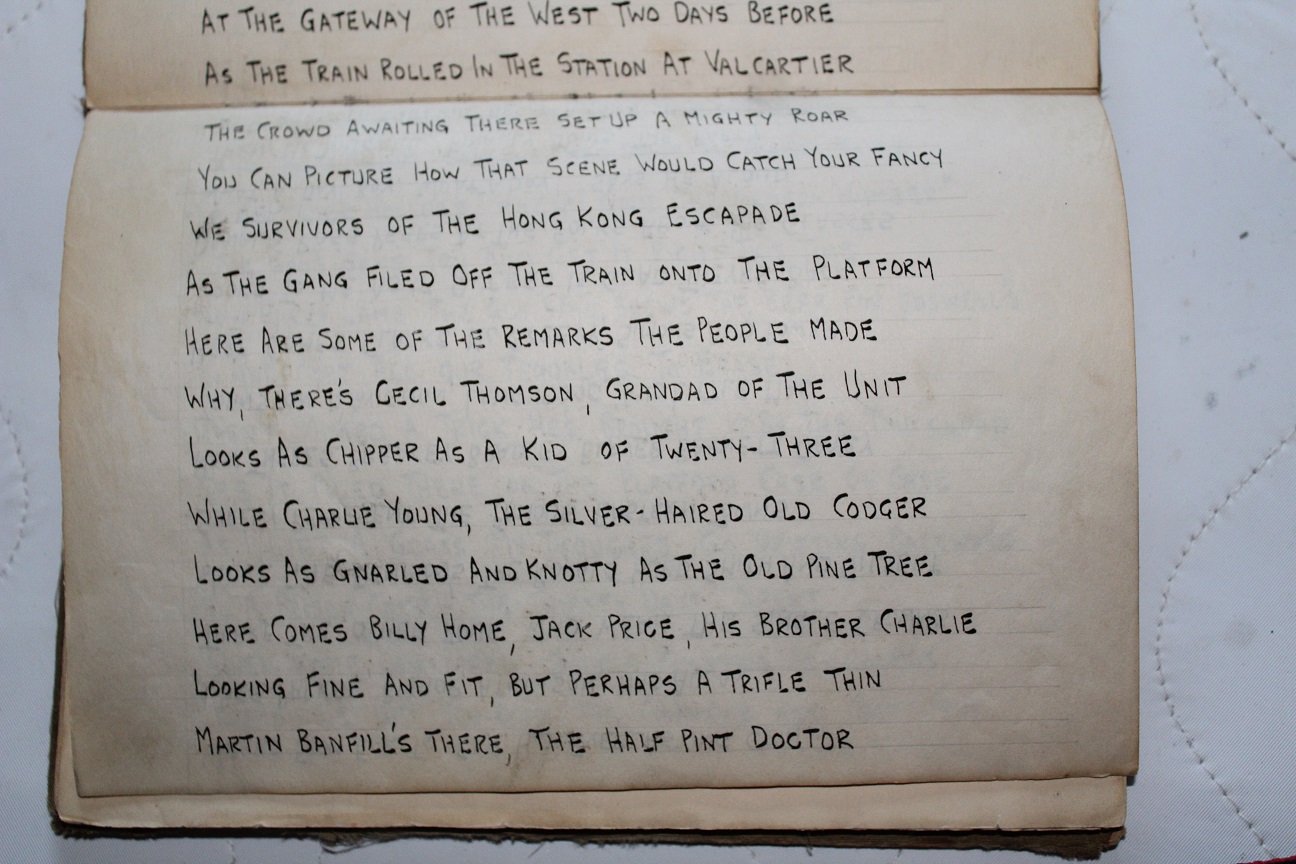 At The Gateway of The West Two Days Before
As The Train Rolled In The Station At Valcartier
The Crowd Awaiting There Set Up A Mighty Roar
You Can Picture How That Scene Would Catch Your Fancy
We Survivors of The Hong Kong Escapade
As The Gang Filed Off The Train onto The Platform
Here Are Some of The Remarks The People Made
Why, There's Cecil Thomson, Grandad of The Unit
Looks As Chipper As A Kid of Twenty-Three
While Charlie Young, The Silver-Haired Old Codger
Looks As Gnarled And Knotty As The Old Pine Tree
Here Comes Billy Home, Jack Price, His Brother Charlie
Looking Fine And Fit, But Perhaps A Trifle Thin
Martin Banfill's There, The Half Pint Doctor